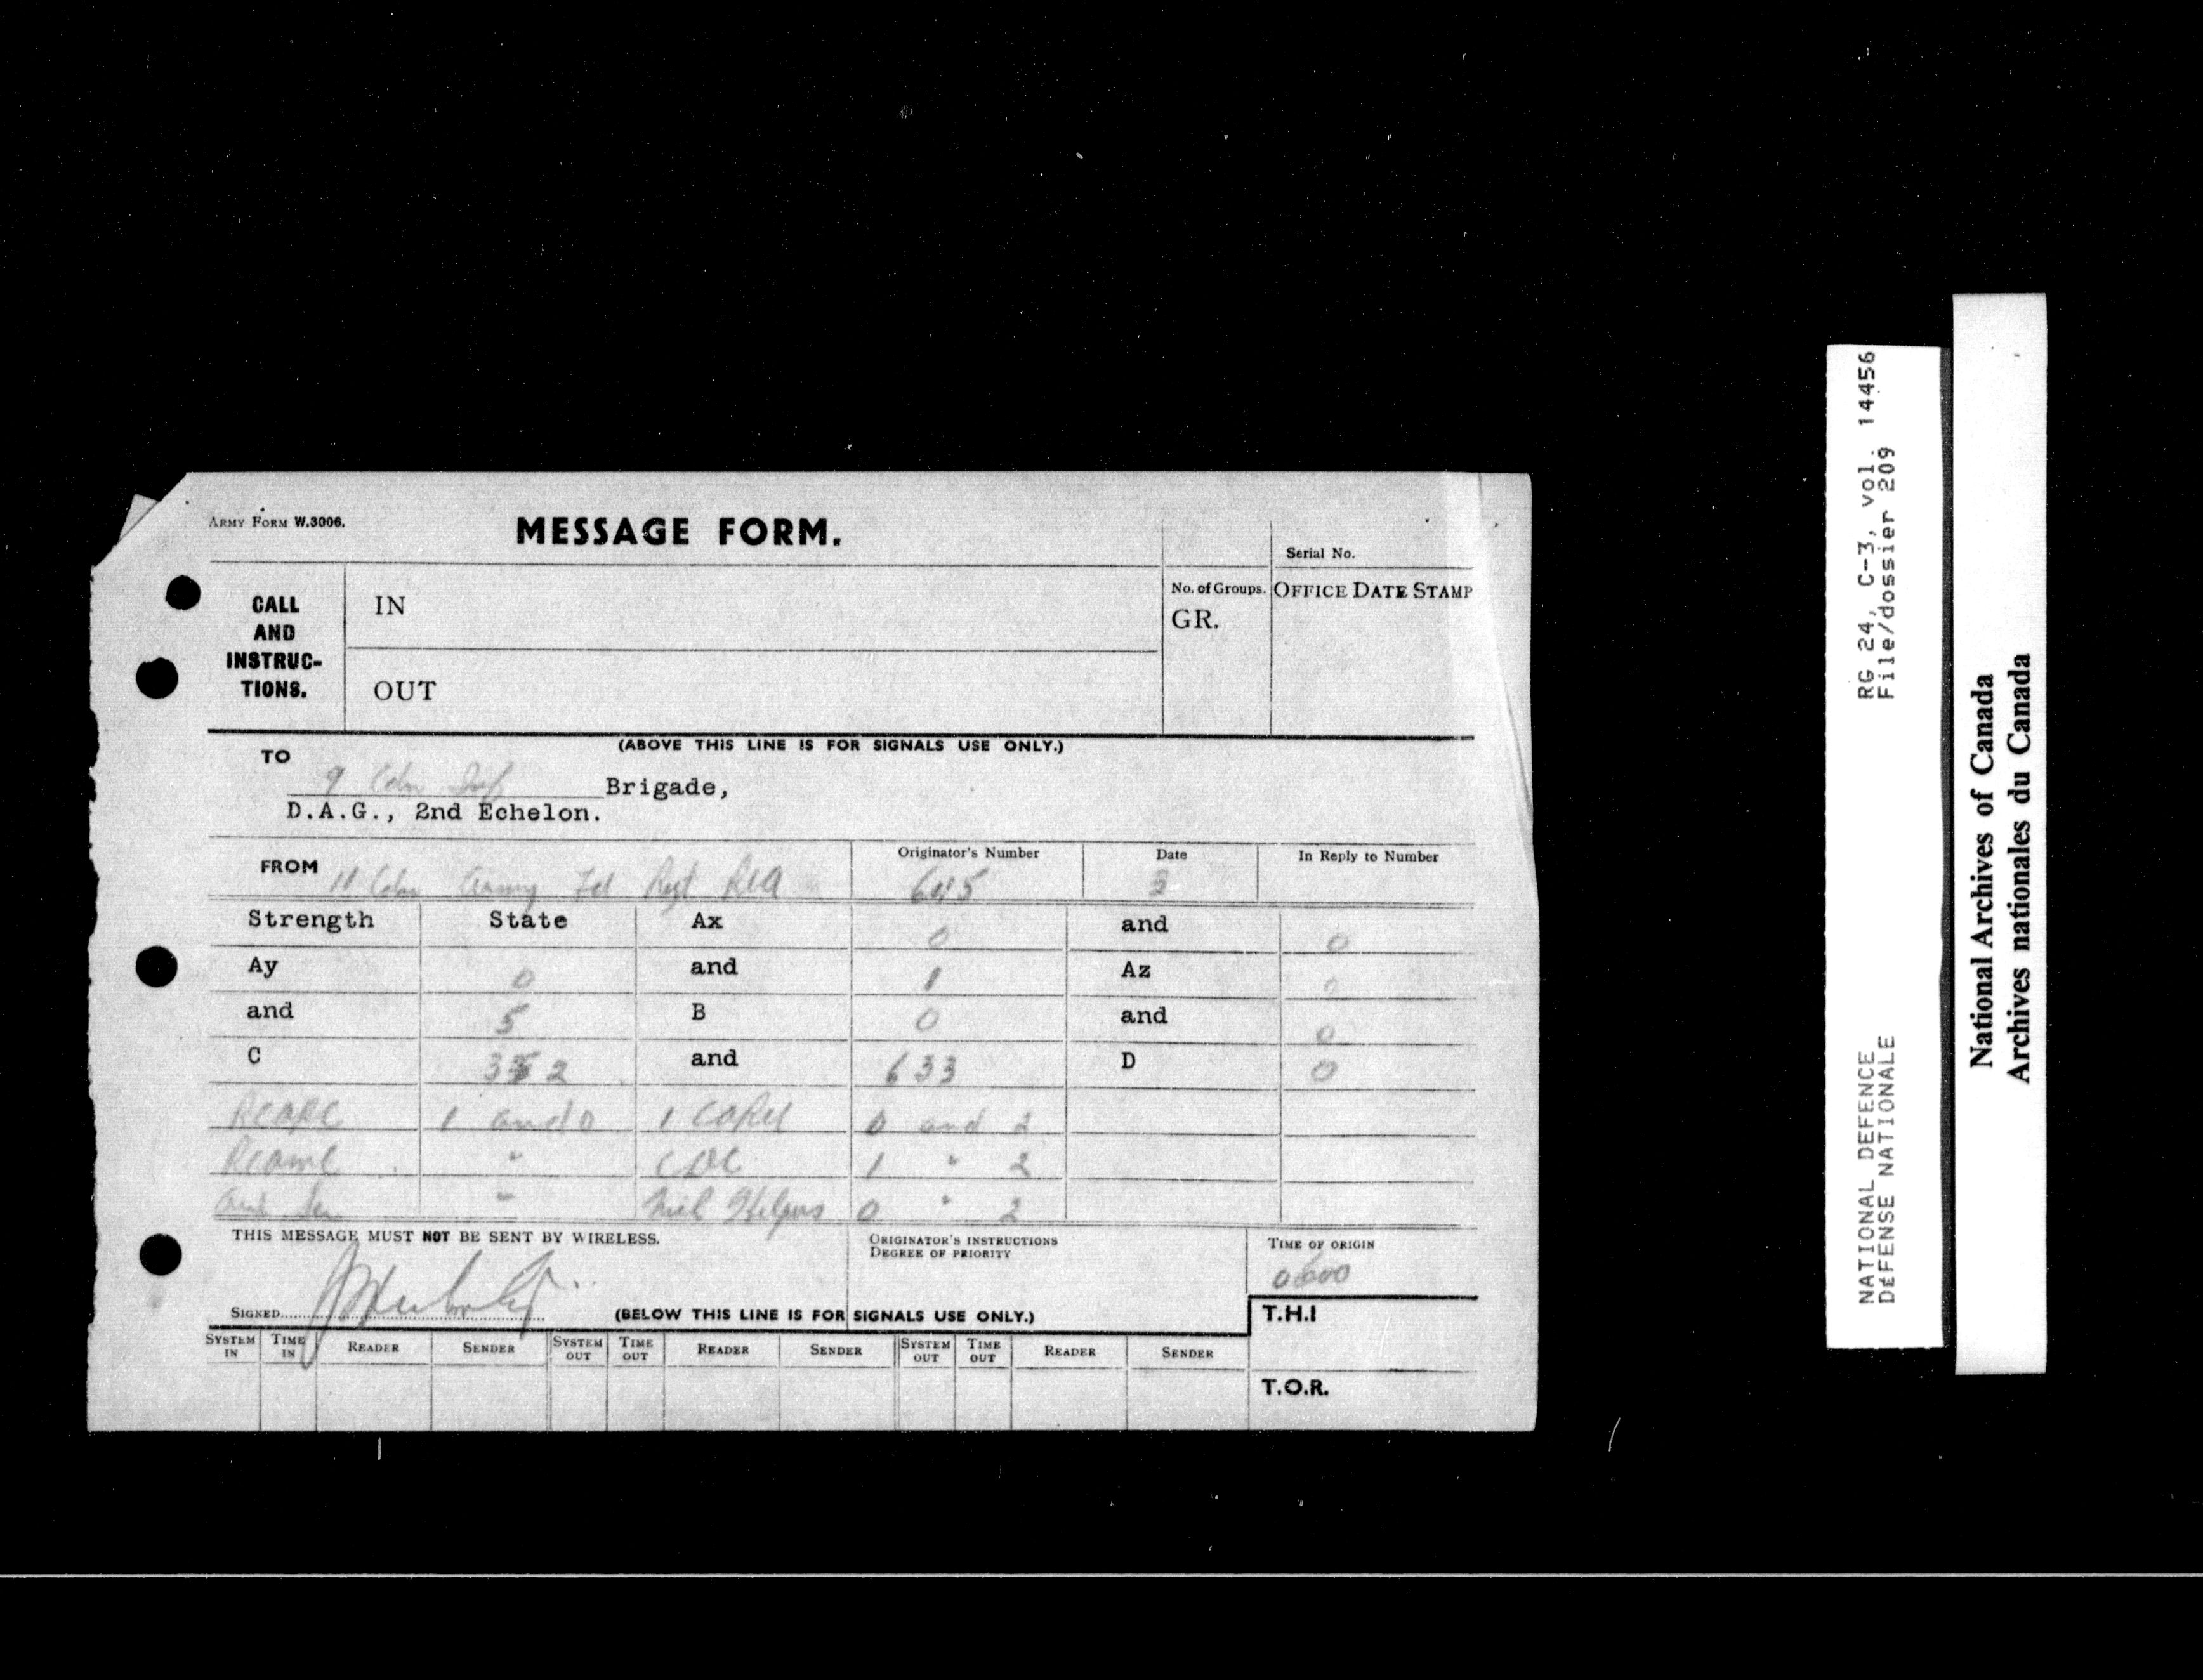 ARMY FORM W.3006.
MESSAGE FORM.
Serial No.
CALL AND INSTRUC-TIONS.
IN
No. of Groups.
GR.
OFFICE DATE STAMP
OUT
(ABOVE THIS LINE IS FOR SIGNALS USE ONLY.)
TO
9 Cdn Inf Brigade,
D.A.G., 2nd Echelon.
FROM 11 Cdn Army Fd Regt RCA
Originator's Number
Date
3
In Reply to Number
Strength State Ax 0 and 0
Ay 0 and 1 Az 0
and 5 B 0 and 0
C and 633 D 0
1 and 0 0 and 2
RCAMC " CDC 1 " 2
" 0 " 2
THIS MESSAGE MUST NOT BE SENT BY WIRELESS.
ORIGINATOR'S INSTRUCTIONS
DEGREE OF PRIORITY
TIME OF ORIGIN
0600
SIGNED
(BELOW THIS LINE IS FOR SIGNALS USE ONLY.)
T.H.I
SYSTEM IN TIME IN READER SENDER SYSTEM OUT TIME OUT READER SENDER SYSTEM OUT TIME OUT READER SENDER
T.O.R.
RG 24, C-3, vol. 14456
File/dossier 209
NATIONAL DEFENCE
DEFENSE NATIONALE
National Archives of Canada
Archives nationales du Canada